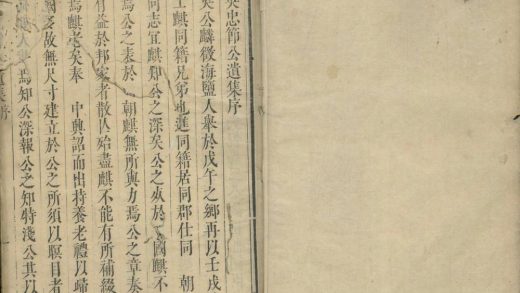 忠節公遺集序
公麟徵海鹽人舉於戊午之鄉再以壬戌
麒同籍兄弟也進同籍居同郡仕同 朝
同志宜麒知公之深矣公之死於 國麒不
焉公之表於 朝麒無所與力焉公之章奏
有益於邦家者散佚殆盡麒不能有所補綴
焉麒老矣奉 中興詔而出持養老禮以歸
國憂故無尺寸建立於公之所須以瞑目者
焉知公深報公之知特淺公其以
集序